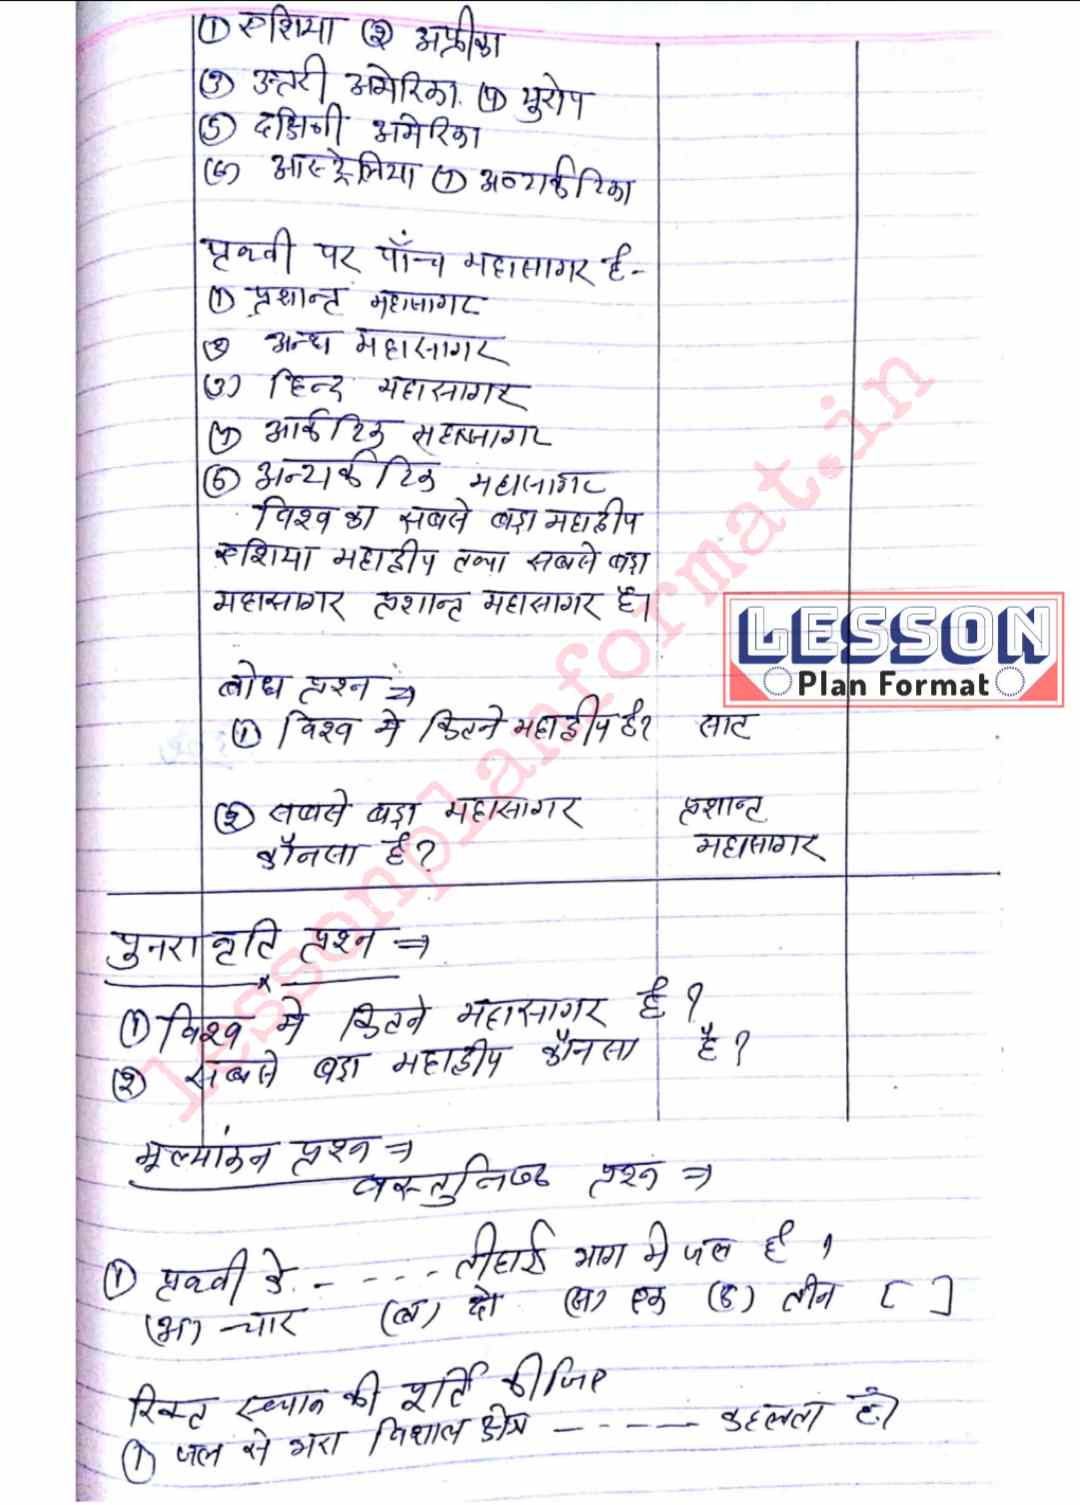 ① एशिया ② अफ्रीका
③ उत्तरी अमेरिका ④ यूरोप
⑤ दक्षिणी अमेरिका
⑥ आस्ट्रेलिया ⑦ अन्टार्कटिका
पृथ्वी पर पाँच महासागर है-
① प्रशान्त महासागर
② अन्ध महासागर
③ हिन्द महासागर
④ आर्कटिक महासागर
⑤ अन्टार्कटिक महासागर
विश्व का सबसे बड़ा महाद्वीप
एशिया महाद्वीप तथा सबसे बड़ा
महासागर प्रशान्त महासागर है।
LESSON
Plan Format
बोध प्रश्न ⇒
① विश्व मे कितने महाद्वीप है? सात
② सबसे बड़ा महासागर प्रशान्त
कौनसा है? महासागर
पुनरावृति प्रश्न ⇒
① विश्व मे कितने महासागर है ?
② सबसे बड़ा महाद्वीप कौनसा है ?
मूल्यांकन प्रश्न ⇒
वस्तुनिष्ठ प्रश्न ⇒
① पृथ्वी के - - - - - तीहाई भाग मे जल है ।
(अ) चार (ब) दो (स) एक (द) तीन [ ]
रिक्त स्थान की पूर्ति कीजिए
① जल से भरा विशाल क्षेत्र - - - - - कहलता है।
lessonplanformat.in